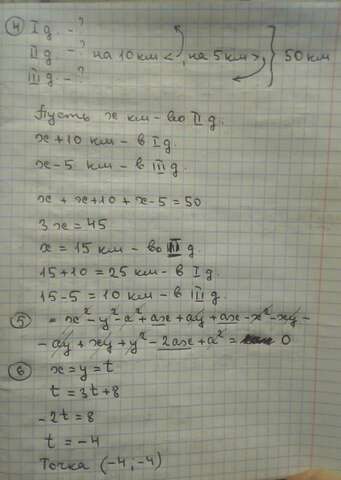 ④ I д. - ?
II д. - ? на 10 км <, на 5 км >, } 50 км
III д. - ?
Пусть x км - во II д.
x + 10 км - в I д.
x - 5 км - в III д.
x + x + 10 + x - 5 = 50
3x = 45
x = 15 км - во II д.
15 + 10 = 25 км - в I д.
15 - 5 = 10 км - в III д.
⑤ = x² - y² - a² + ax + ay + ax - x² - xy -
- ay + xy + y² - 2ax + a² = 0
⑥ x = y = t
t = 3t + 8
-2t = 8
t = -4
Точка (-4; -4)